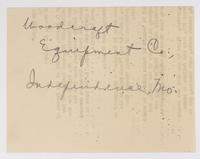 Woodcraft
Equipment Co.,
Independence, Mo.